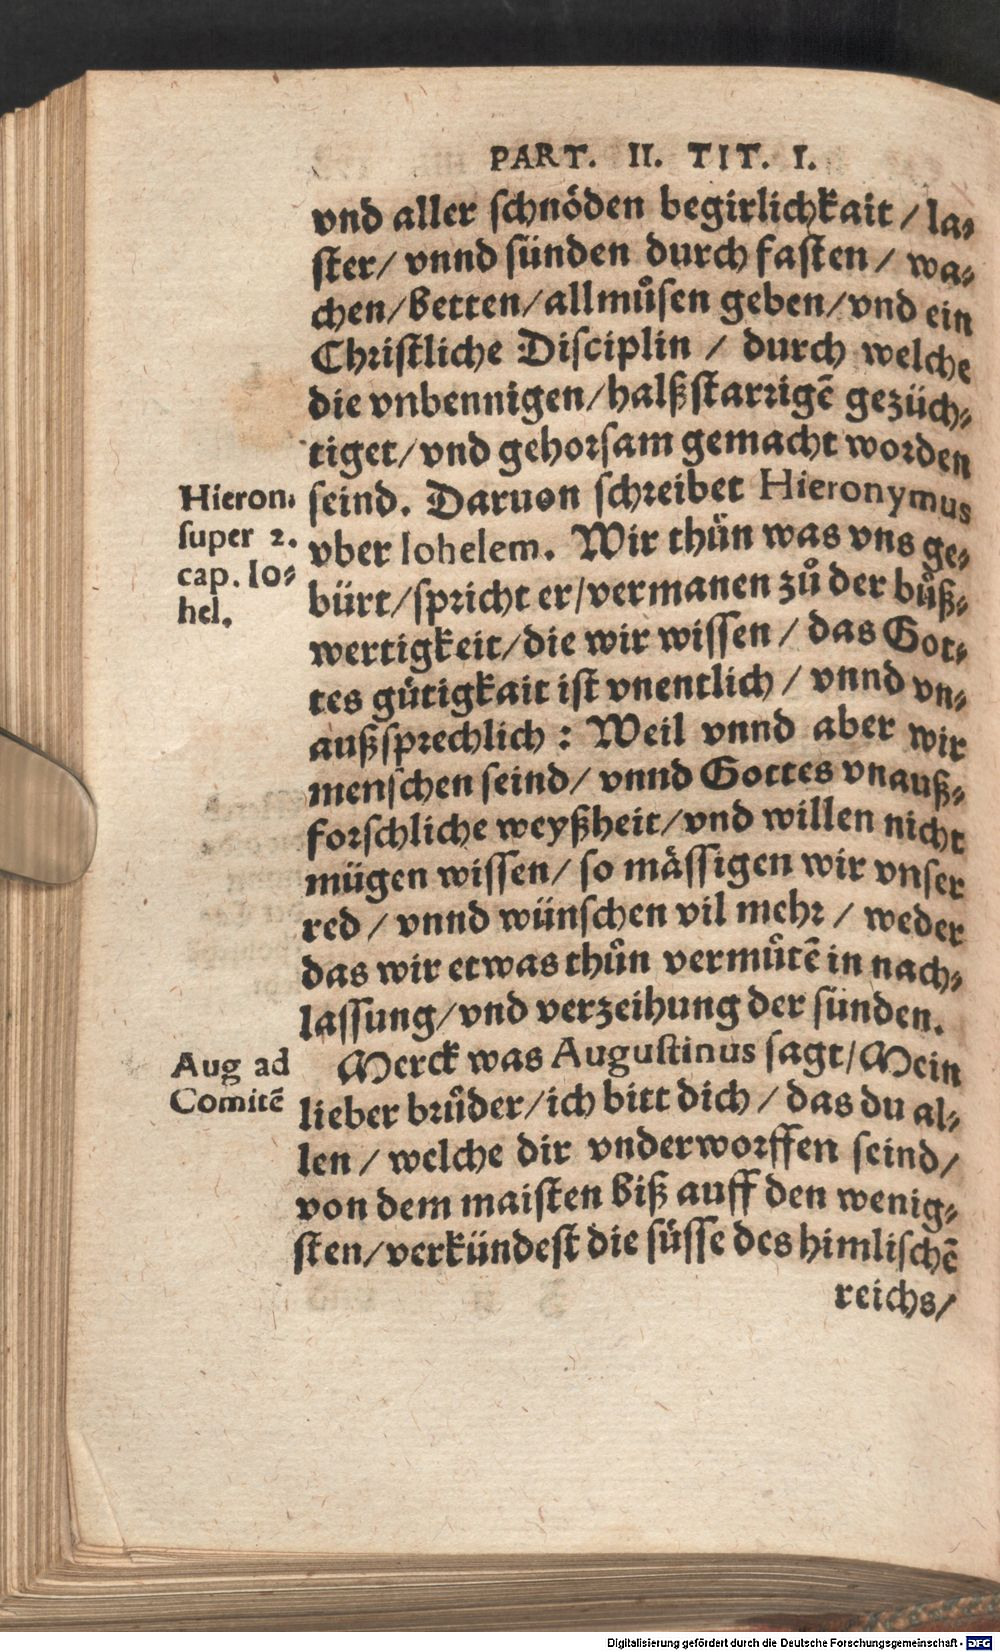 PART. II. TIT. I.
vnd aller schnöden begirlichkait / la⸗
ster/ vnnd sünden durch fasten / wa⸗
chen/betten/allmuͦsen geben/vnd ein
Christliche Disciplin / durch welche
die vnbennigen/halßstarrigē gezüch⸗
tiget/vnd gehorsam gemacht worden
seind. Daruon schreibet Hieronymus
vber Iohelem. Wir thuͦn was vns ge⸗
bürt/spricht er/vermanen zuͦ der buͦß⸗
wertigkeit/die wir wissen / das Got⸗
tes gütigkait ist vnentlich / vnnd vn⸗
außsprechlich : Weil vnnd aber wir
menschen seind/ vnnd Gottes vnauß⸗
forschliche weyßheit/vnd willen nicht
mügen wissen/ so mässigen wir vnser
red / vnnd wünschen vil mehr / weder
das wir etwas thuͦn vermuͦtē in nach⸗
lassung/vnd verzeihung der sünden.
Merck was Augustinus sagt/Mein
lieber bruͦder/ich bitt dich / das du al⸗
len / welche dir vnderworffen seind/
von dem maisten biß auff den wenig⸗
sten/verkündest die süsse des himlischē
reichs/
Hieron.
super 2.
cap. Io⸗
hel.
Aug ad
Comitē
Digitalisierung gefördert durch die Deutsche Forschungsgemeinschaft - DFG